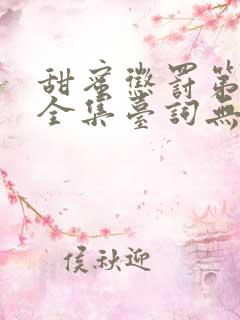 甜蜜懲罰第
全集臺詞無
侯秋迎